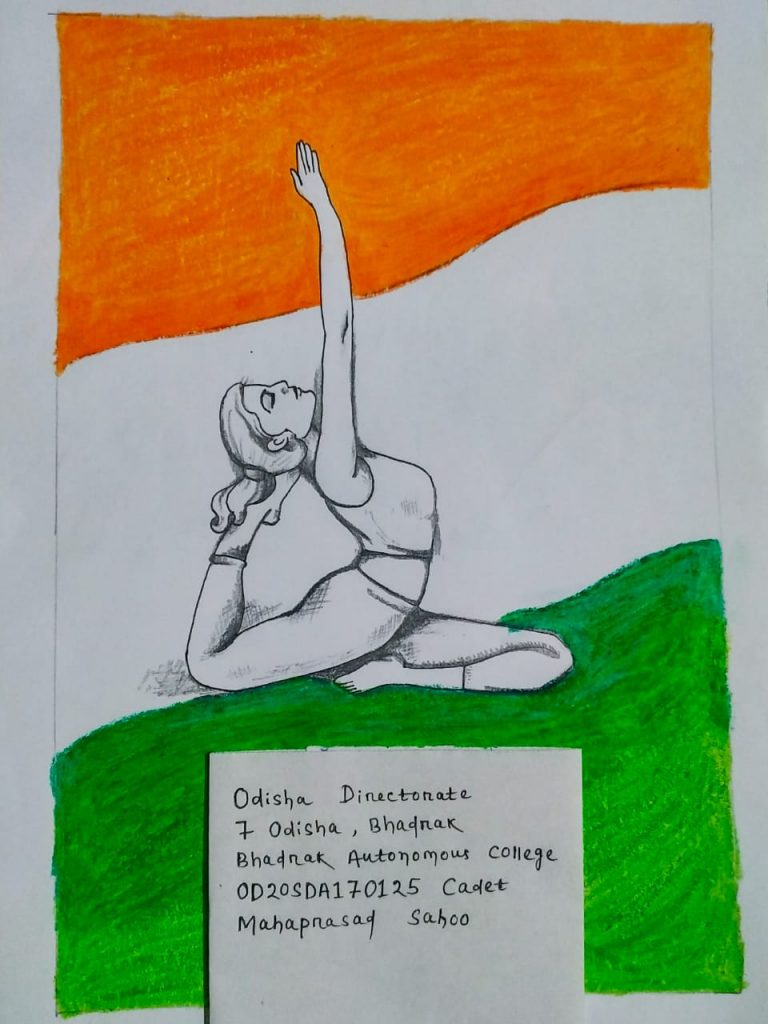 Odisha Directorate
7 Odisha, Bhadrak
Bhadrak Autonomous College
OD20SDA170125 Cadet
Mahaprasad Sahoo